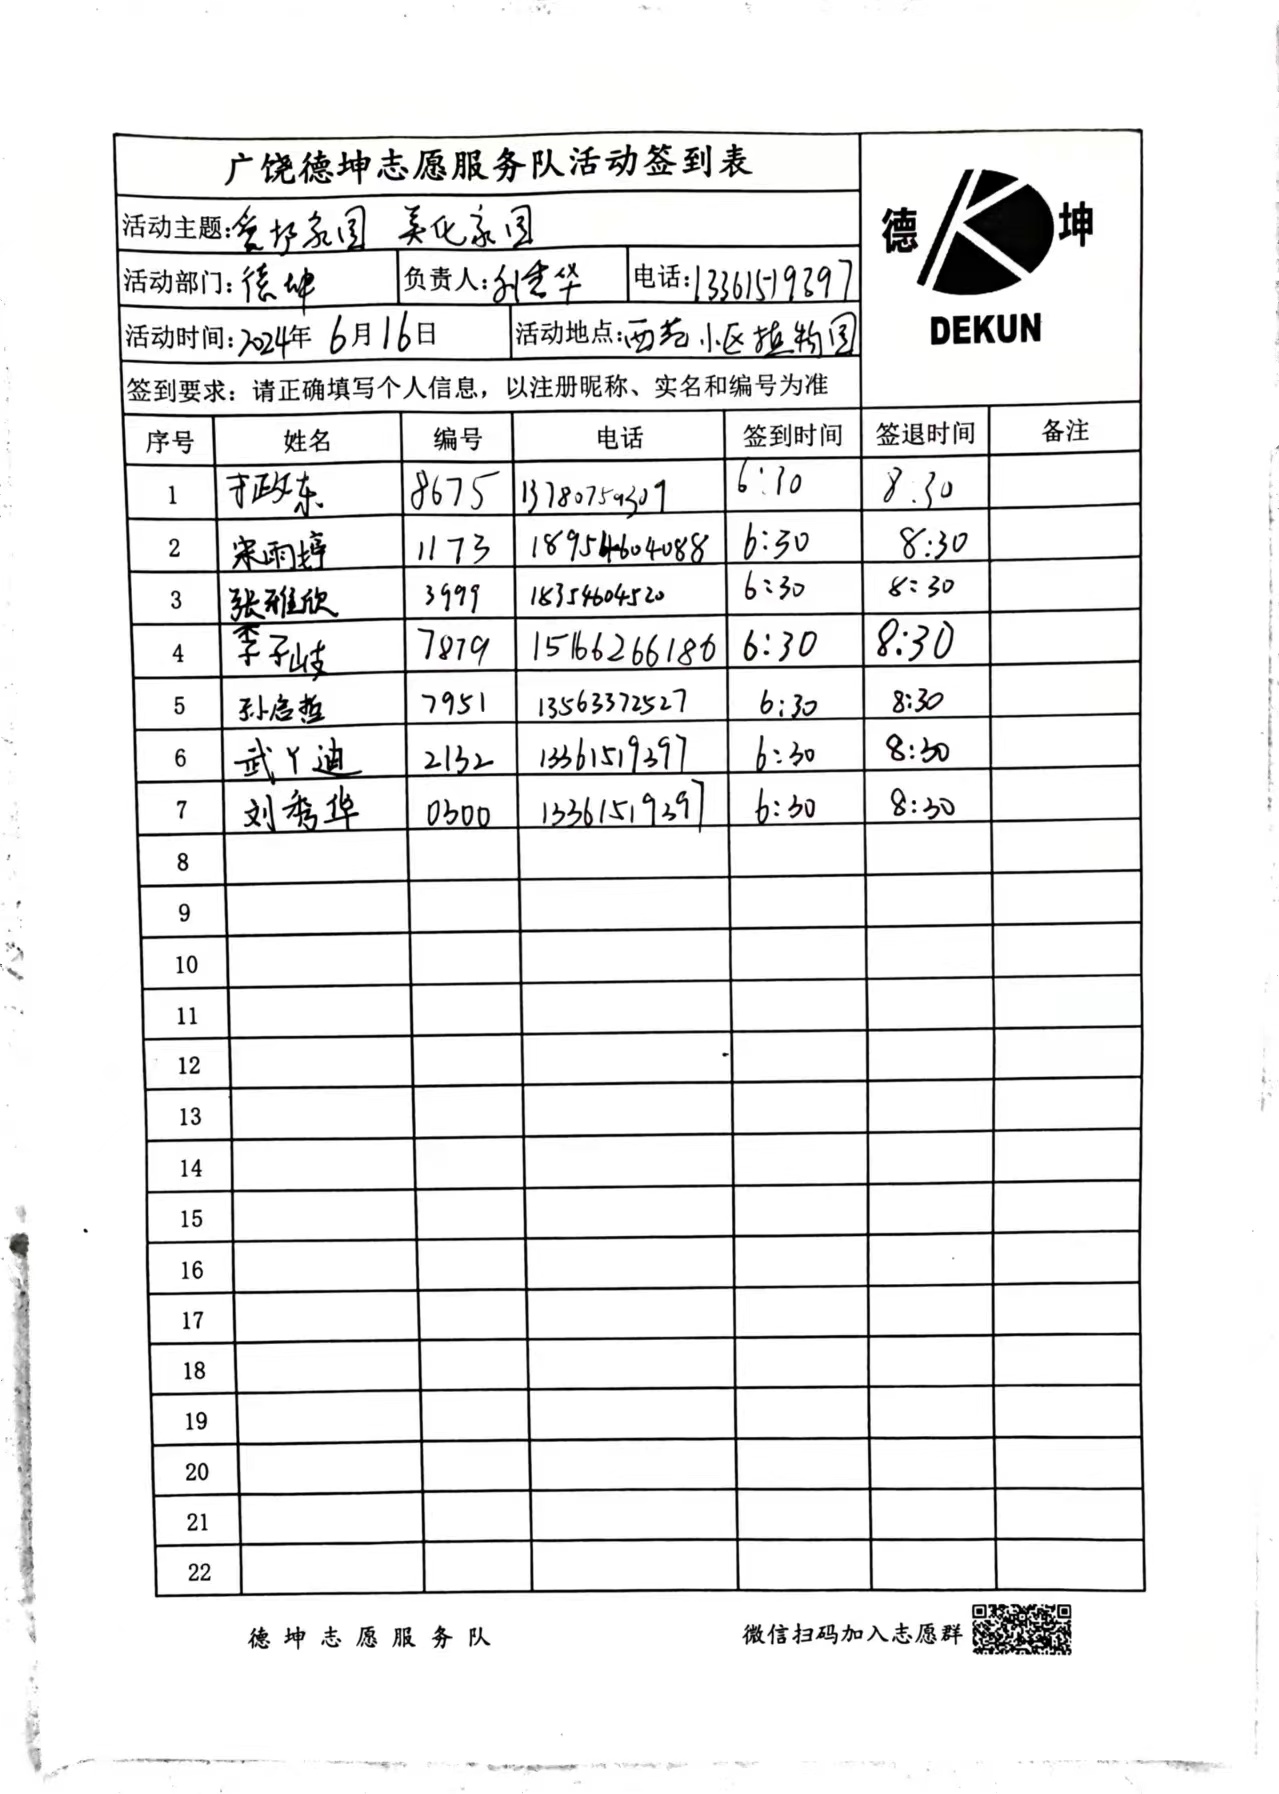 广饶德坤志愿服务队活动签到表
活动主题:爱护家园 美化家园
德 坤
DEKUN
活动部门:德坤 负责人:刘秀华 电话:13361519397
活动时间:2024年6月16日 活动地点:西苑小区植物园
签到要求：请正确填写个人信息，以注册昵称、实名和编号为准
序号 姓名 编号 电话 签到时间 签退时间 备注
1 政东 8675 13780759309 6:30 8:30
2 宋雨婷 1173 18954604088 6:30 8:30
3 张雅欣 3999 18354604520 6:30 8:30
4 李子岐 7879 15166266186 6:30 8:30
5 孙启哲 7951 13563372527 6:30 8:30
6 武丫迪 2132 13361519397 6:30 8:30
7 刘秀华 0300 13361519397 6:30 8:30
8
9
10
11
12
13
14
15
16
17
18
19
20
21
22
德坤志愿服务队 微信扫码加入志愿群